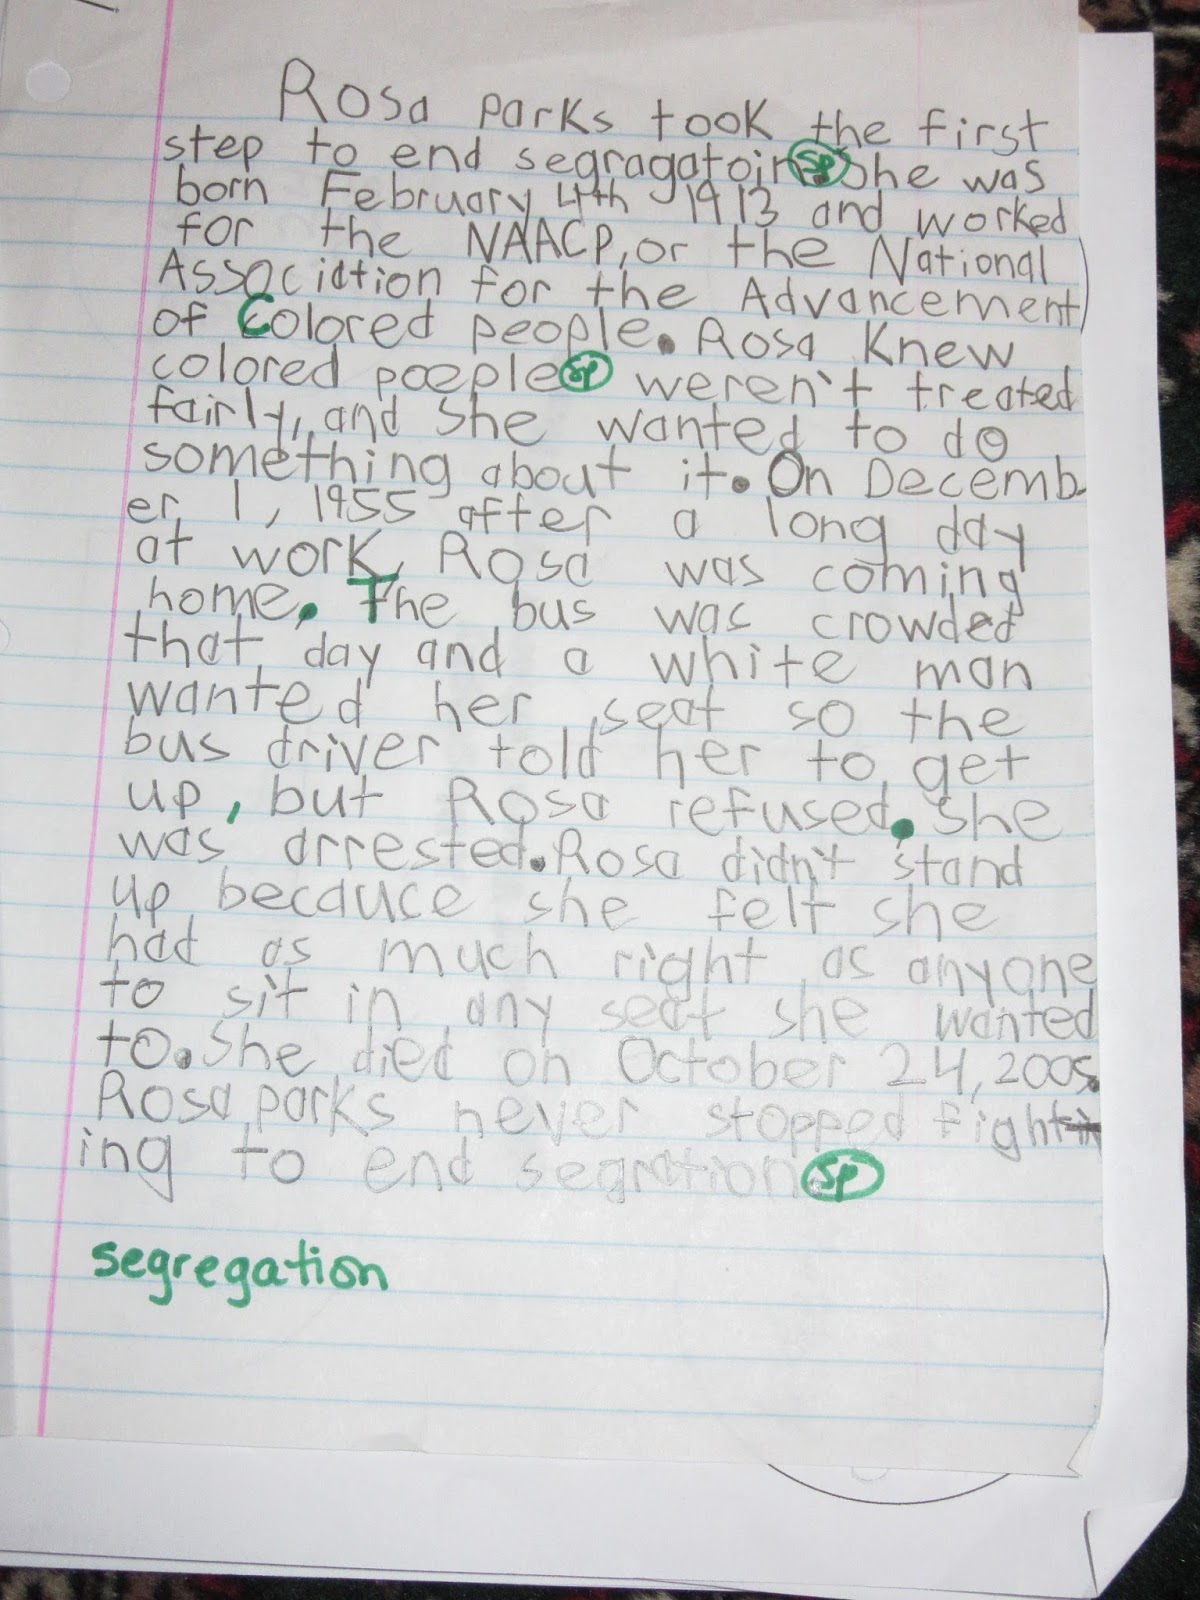 Rosa parks took the first
step to end segragatoin sp. She was
born February 4th 1913 and worked
for the NAACP, or the National
Association for the Advancement
of Colored people. Rosa Knew
colored poeple sp weren't treated
fairly, and she wanted to do
something about it. On Decemb
er 1, 1955 after a long day
at work, Rosa was coming
home. The bus was crowded
that day and a white man
wanted her seat so the
bus driver told her to get
up, but Rosa refused. She
was arrested. Rosa didn't stand
up becauce she felt she
had as much right as anyone
to sit in any seat she wanted
to. She died on October 24, 2005.
Rosa parks never stopped fight
ing to end segration sp
segregation